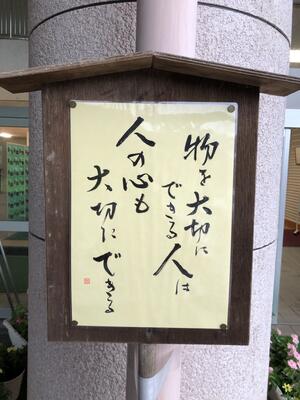 物を大切に
できる人は
人の心も
大切にできる